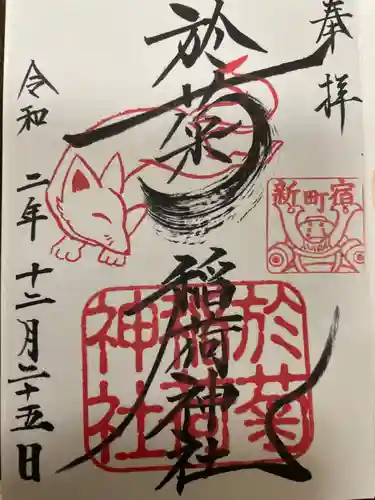 奉拝
於菊稲荷神社
令和二年十二月二十五日
新町宿
於菊
稲荷
神社